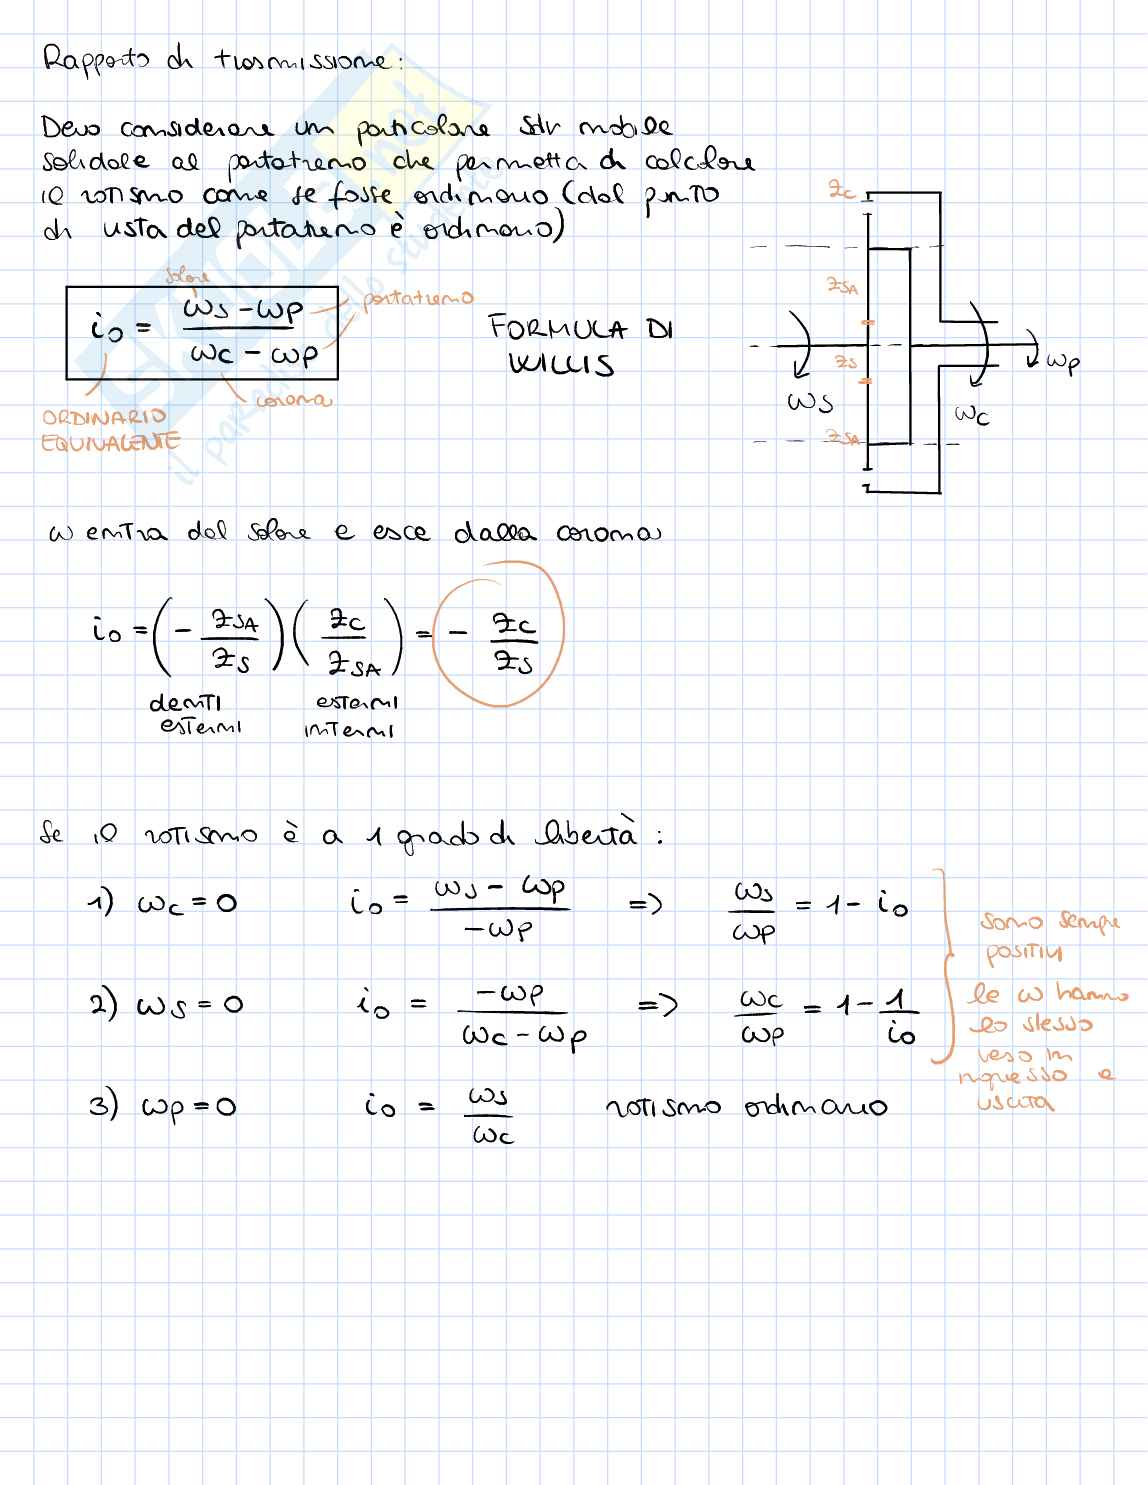 Rapporto di trasmissione:
Devo considerare un particolare sdr mobile
solidale al portatreno che permetta di calcolare
il rotismo come se fosse ordinario (dal punto
di vista del portatreno è ordinario)
solare
i₀ = (ωs - ωp) / (ωc - ωp)
portatreno
corona
ORDINARIO
EQUIVALENTE
FORMULA DI
WILLIS
zc
zSA
zs
zSA
ωs
ωc
ωp
ω entra dal solare e esce dalla corona
i₀ = (- zSA / zS) (zc / zSA) = - zc / zs
denti
esterni
esterni
interni
Se il rotismo è a 1 grado di libertà:
1) ωc = 0 i₀ = (ωs - ωp) / (-ωp) => ωs / ωp = 1 - i₀
2) ωs = 0 i₀ = (-ωp) / (ωc - ωp) => ωc / ωp = 1 - 1 / i₀
3) ωp = 0 i₀ = ωs / ωc rotismo ordinario
sono sempre
positivi
le ω hanno
lo stesso
verso in
ingresso e
uscita